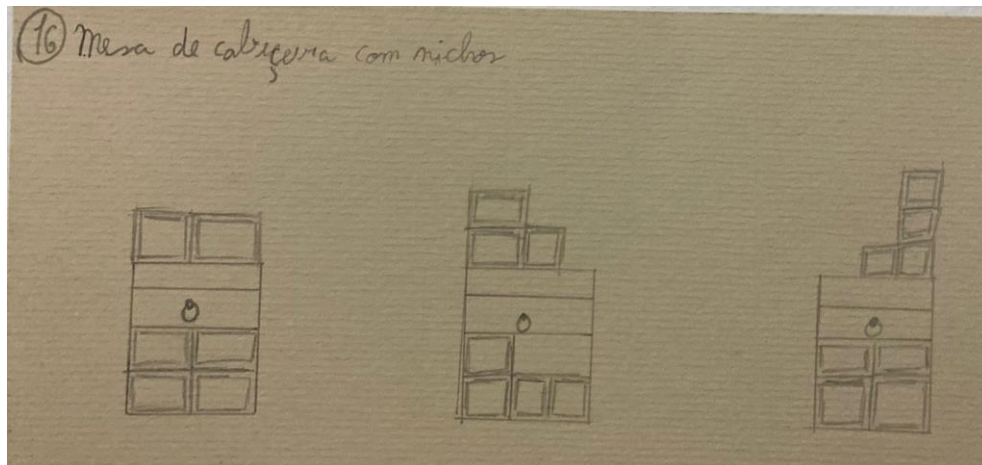 16 Mesa de cabeçeira com nichos